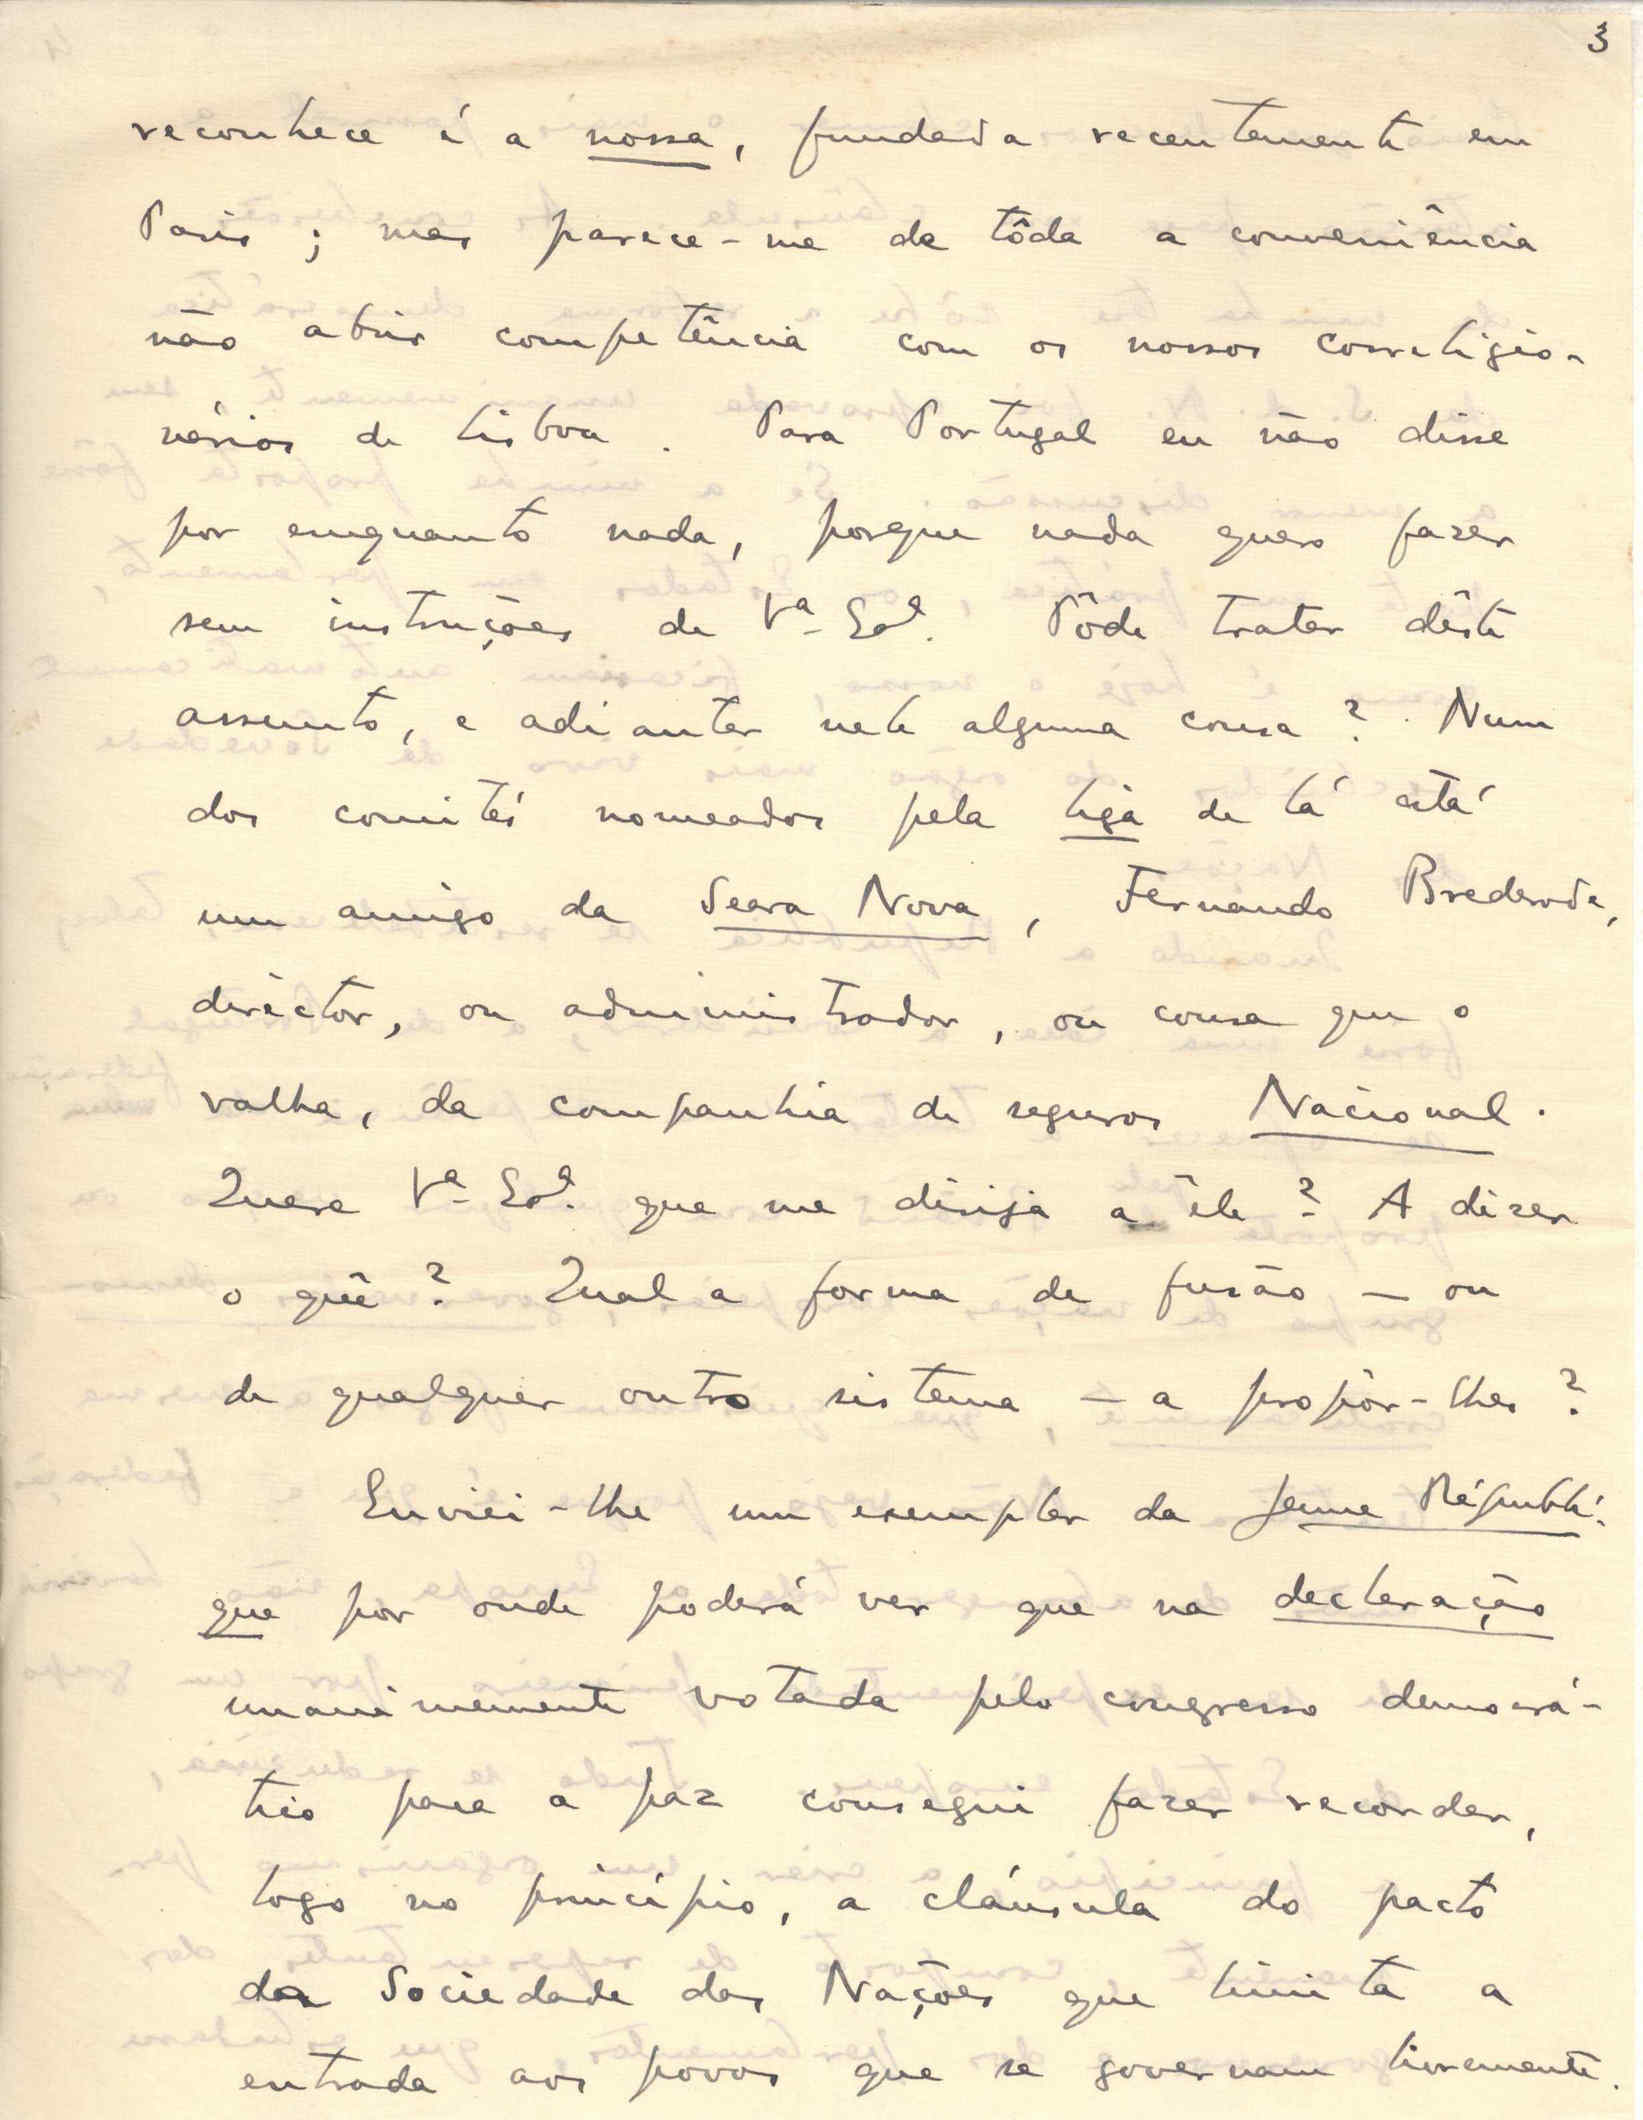 3
reconhece é a nossa, fundada recentemente em
Paris; mas parece-me de tôda a conveniência
não abrir competência com os nossos correligio-
nários de Lisboa. Para Portugal eu não disse
por emquanto nada, porque nada quero fazer
sem instruções de Vª Exª. Pôde tratar dêste
assunto, e adiantar nele alguma cousa? Num
dos comités nomeados pela Liga de lá está
um amigo da Seara Nova, Fernando Brederode,
diréctor, ou administrador, ou cousa que o
valha, da companhia de seguros Nacional.
Quere Vª Exª que me dirija a êle? A dizer
o quê? Qual a forma de fusão — ou
de qualquer outro sistema — a propôr-lhes?
Enviei-lhe um exemplar da Jeune Républi-
que por onde poderá ver que na declaração
unanimemente votada pelo congresso democrá-
tico para a paz consegui fazer recordar,
logo no princípio, a cláusula do pacto
da Sociedade das Nações que limita a
entrada aos povos que se governam livremente.